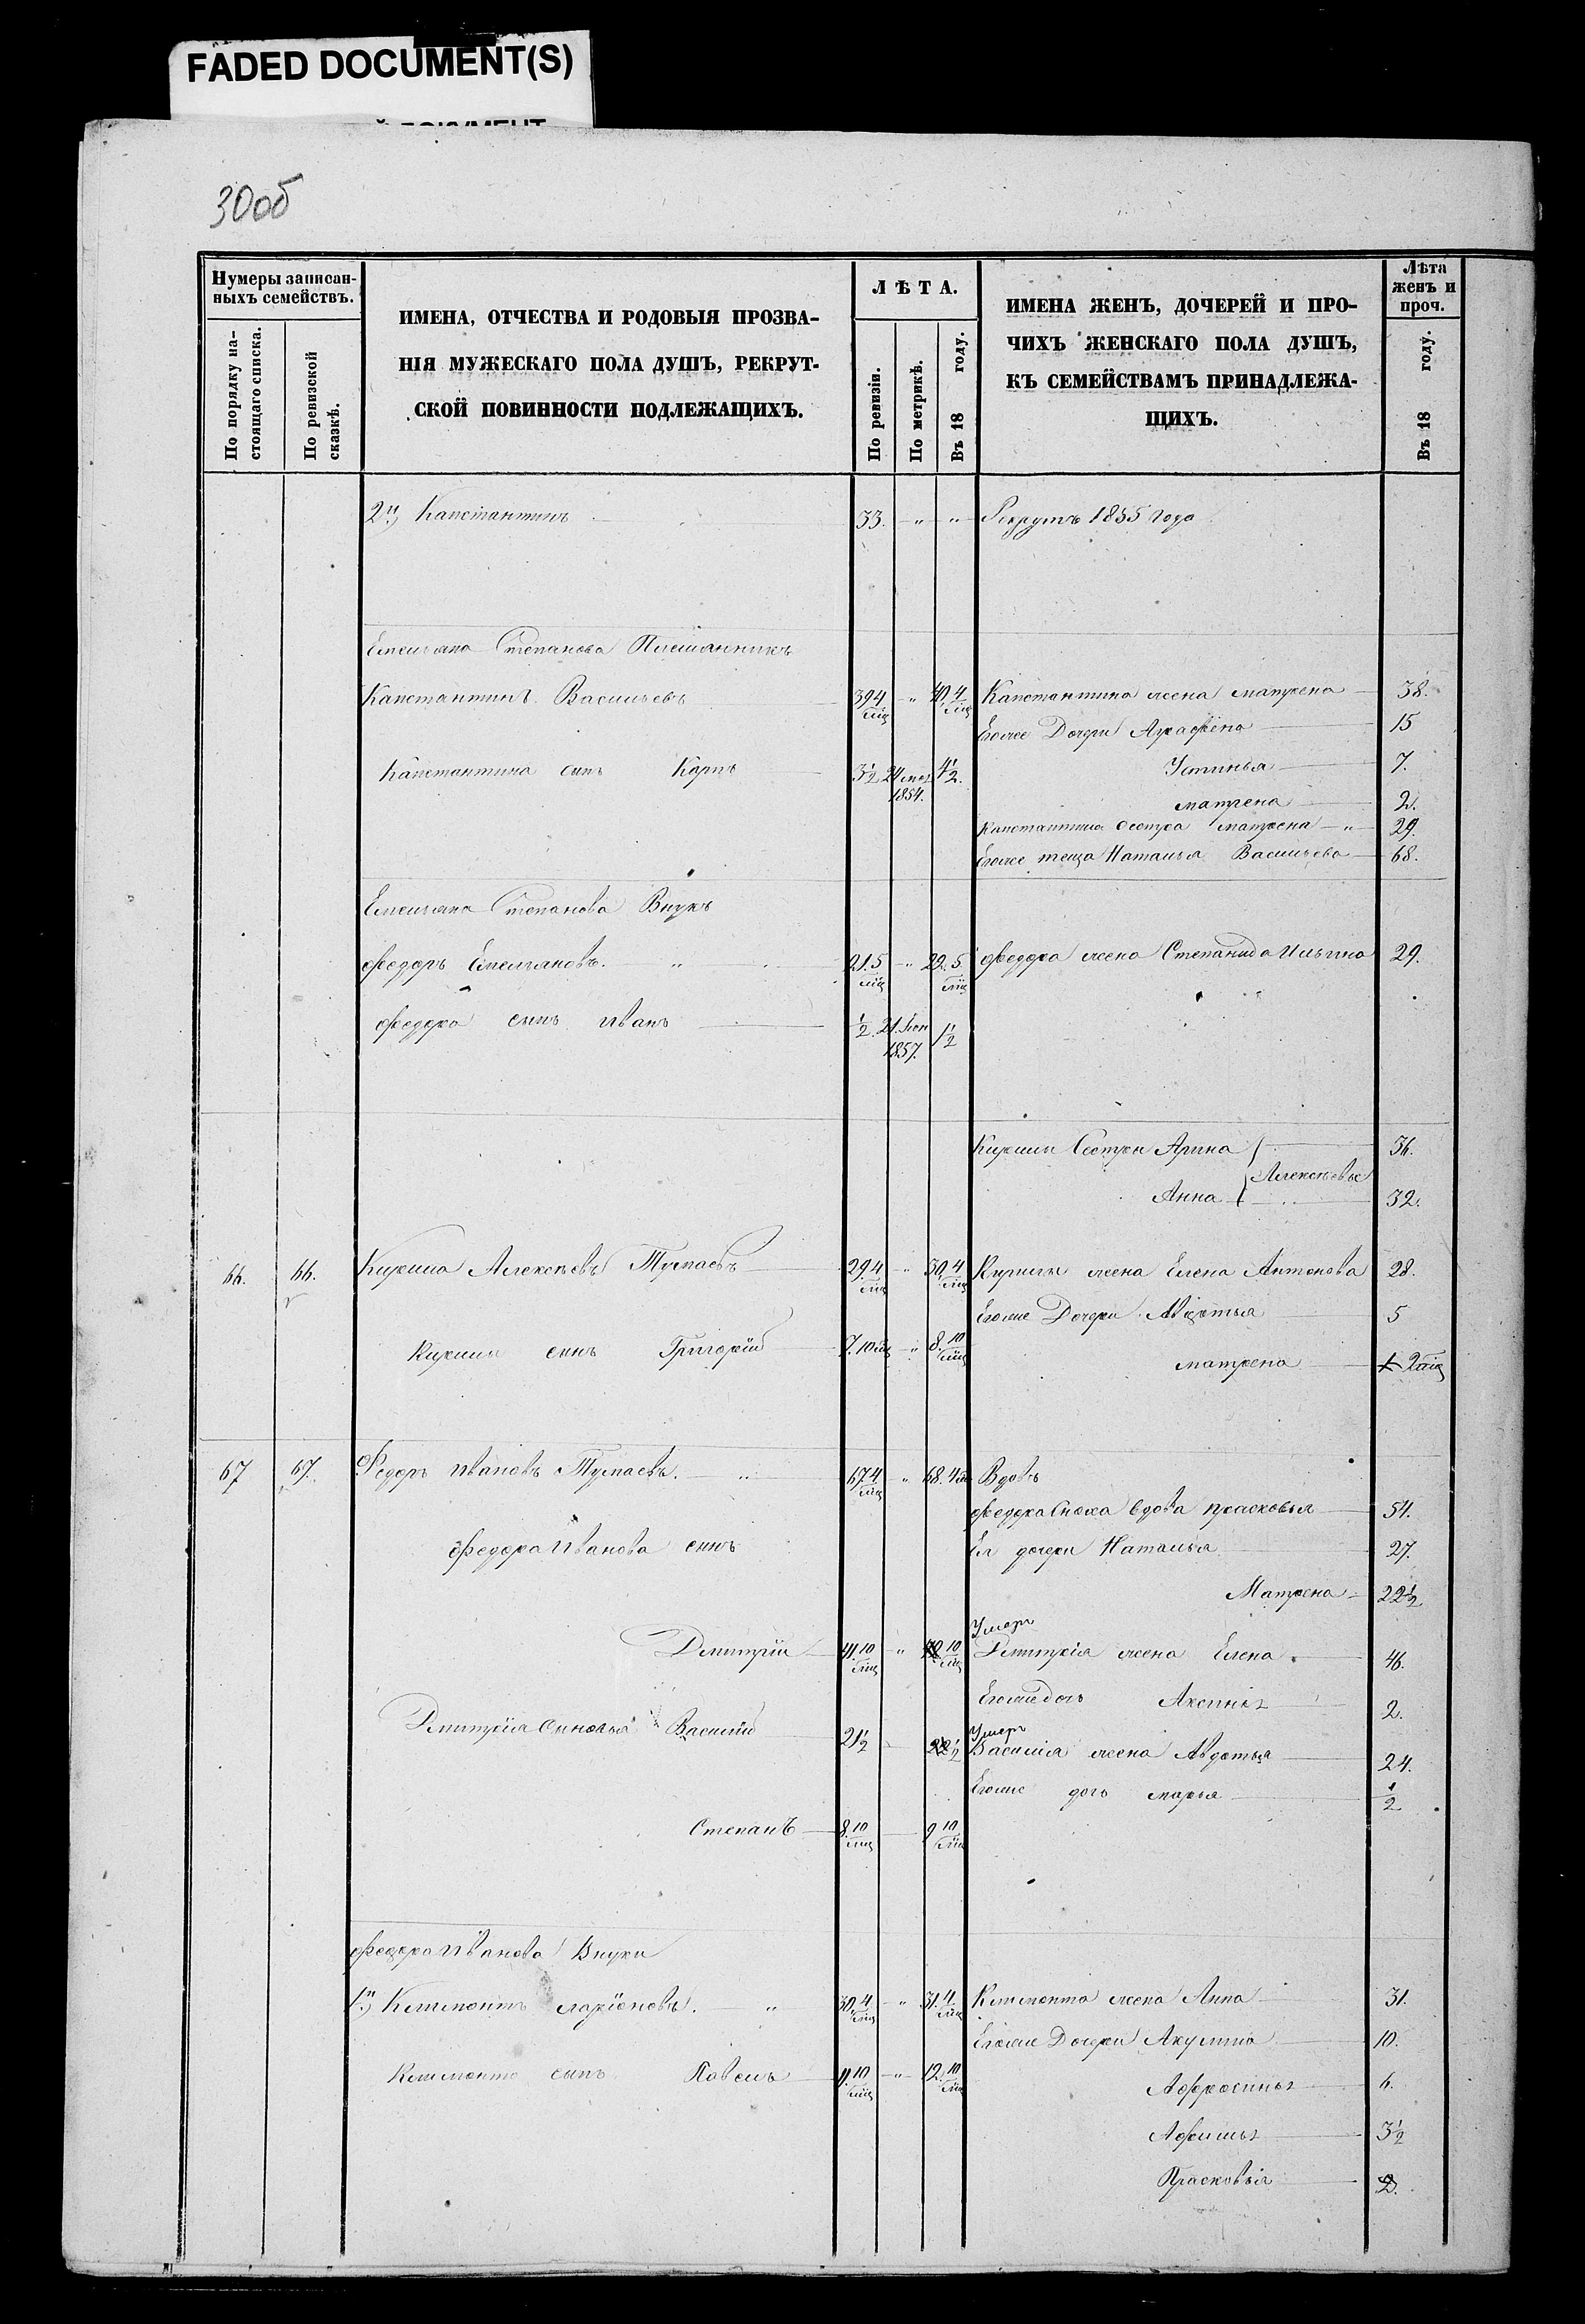 FADED DOCUMENT(S)
30об
Нумеры записан-
ныхъ семействъ.
По порядку на-
стоящаго списка.
По ревизской
сказкѣ.
ИМЕНА, ОТЧЕСТВА И РОДОВЫЯ ПРОЗВА-
НІЯ МУЖЕСКАГО ПОЛА ДУШЪ, РЕКРУТ-
СКОЙ ПОВИННОСТИ ПОДЛЕЖАЩИХЪ.
ЛѢТА.
По ревизіи.
По метрикѣ.
Въ 18 году.
ИМЕНА ЖЕНЪ, ДОЧЕРЕЙ И ПРО-
ЧИХЪ ЖЕНСКАГО ПОЛА ДУШЪ,
КЪ СЕМЕЙСТВАМЪ ПРИНАДЛЕЖА-
ЩИХЪ.
Лѣта
женъ и
проч.
Въ 18 году.
2й) Капстантинъ 33. " " Рекрутъ 1855 года
Емельяна Степанова Племянникъ
Капстантинъ Васильевъ 39 4/мц " 40 4/мц Капстантина жена матрена 38.
Егоже Дочери Аграфена 15
Капстантина сынъ Карпъ 3 1/2 24 мая 1854. 4 1/2. Устинья 7.
матрена 2.
Капстантина сестра матрена " 29.
Егоже теща Наталья Васильева 68.
Емельяна Степанова Внукъ
Федоръ Емельяновъ. " 21. 5/мц " 22. 5/мц Федора жена Степанида Ильина 29.
Федора сынъ Иванъ 1/2. 21. Іюн 1857. 1 1/2
Кирила Сестры Арина 36.
Алексѣевы
Анна 32.
66. 66. Кирила Алексѣевъ Тумаевъ 29 4/мц " 30 4/мц Кирилы жена Елена Антонова 28.
Егоже Дочери Авдотья 5
Кирилы сынъ Григорій 7. 10 мц " 8. 10/мц матрена 2 мц
67 67. Федоръ Ивановъ Тумаевъ. " 67 4/мц " 68. 4 м Вдовъ
Федора Сноха вдова прасковья 54.
Федора Иванова сынъ Ея дочери Наталья 27.
Матрена 22 1/2
Умеръ
Дмитрій 41. 10/мц " 42 10/мц Дмитрія жена Елена 46.
Егоже дочь Аксинья 2.
Умеръ
Дмитрія Сыновья Василій 21 1/2 22 1/2 Василія жена Авдотья 24.
Егоже дочь марья 1/2
Степанъ 8. 10/мц 9 10/мц
Федора Иванова Внуки
1й) Климонтъ ларіоновъ. " 30. 4/мц " 31. 4/мц Климонта жена Анна 31.
Егоже Дочери Акулина 10.
Климонта сынъ Павелъ 11. 10/мц " 12. 10/мц Афросинья 6.
Афимья 3 1/2
Прасковья 2.